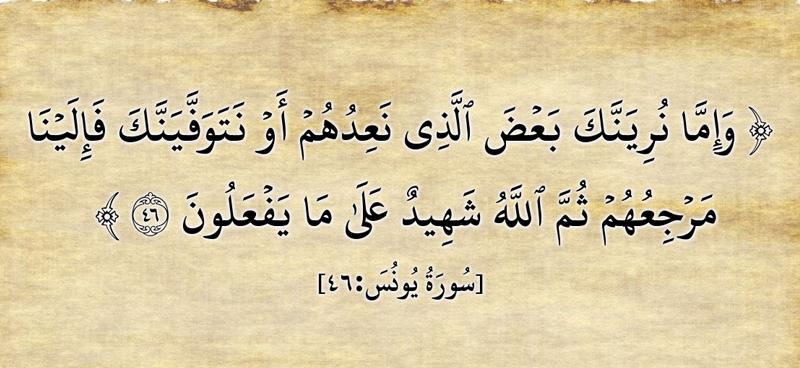 ﴿ وَإِمَّا نُرِيَنَّكَ بَعْضَ ٱلَّذِى نَعِدُهُمْ أَوْ نَتَوَفَّيَنَّكَ فَإِلَيْنَا
مَرْجِعُهُمْ ثُمَّ ٱللَّهُ شَهِيدٌ عَلَىٰ مَا يَفْعَلُونَ ٤٦ ﴾
[سُورَةُ يُونُسَ:٤٦]